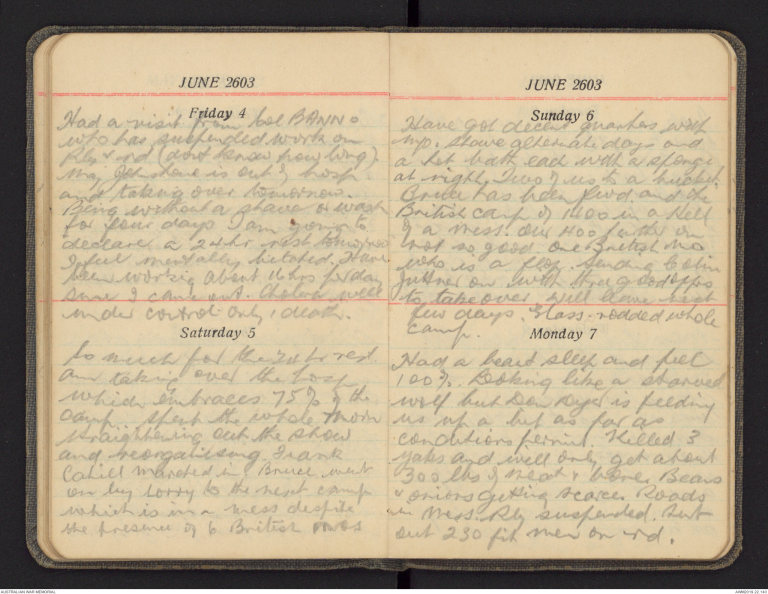 JUNE 2603
Friday 4
Had a visit from Col BANNO
who has suspended work on
Rly & rd (don't know how long).
May Johnstone is out of hosp
and taking over tomorrow.
Being without a shave or wash
for four days I am going to
declare a 24 hr rest tomorrow
I feel mentally botched. Have
been working about 16 hrs per day
since I came out. Cholera well
under control only 1 death.
Saturday 5
So much for the 24 hr rest
am taking over the hosp
which embraces 75% of the
camp. Spent the whole morn
straightening out the show
and reorganising. Frank
Cahill marched in. Bruce went
on by lorry to the next camp
which is in a mess despite
the presence of 6 British MOs
JUNE 2603
Sunday 6
Have got decent quarters with
MO. Shave alternate days and
a hot bath each with a sponge
at night. Two of us to a bucket.
Bruce has been fwd and the
British camp of 1600 in a hell
of a mess. Our 400 further on
not so good. One British MO
who is a flop. Sending Colin
Juttner on with three good offrs
to take over. Will leave next
few days. Glass-rodded whole
camp.
Monday 7
Had a beaut sleep and feel
100%. Looking like a starved
wolf but Don Dyer is feeding
us up a bit as far as
conditions permit. Killed 3
yaks and will only get about
300 lbs of meat & bone. Beans
& onions getting scarce. Roads
in mess. Rly suspended. Put
out 230 fit men on rd.
AUSTRALIAN WAR MEMORIAL